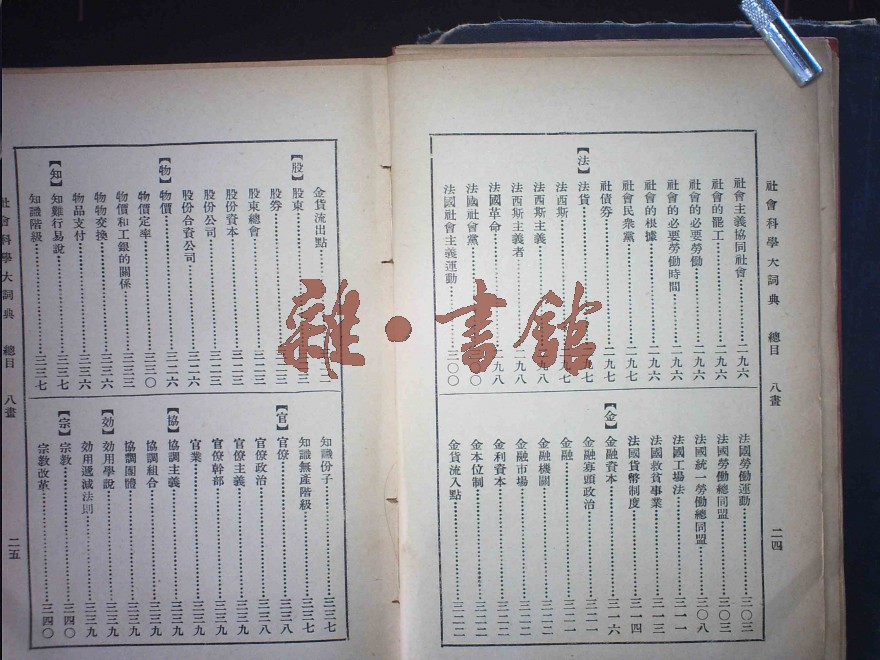 社會科學大詞典 總目 八畫 二四
社會主義協同社會⋯⋯二九六
社會的罷工⋯⋯二九六
社會的必要勞働⋯⋯二九六
社會的必要勞働時間⋯⋯二九六
社會的根據⋯⋯二九六
社會民衆黨⋯⋯二九七
社債券⋯⋯二九七
【法】法貨⋯⋯二九七
法西斯⋯⋯二九七
法西斯主義⋯⋯二九八
法西斯主義者⋯⋯二九八
法國革命⋯⋯二九八
法國社會黨
法國社會主義運動⋯⋯三〇〇
法國勞働運動⋯⋯三〇三
法國勞働總同盟⋯⋯三〇三
法國統一勞働總同盟⋯⋯三〇八
法國工場法⋯⋯三一一
法國救貧事業⋯⋯三一三
法國貨幣制度⋯⋯三一四
【金】金融資本⋯⋯三一六
金融寡頭政治⋯⋯三二一
金融⋯⋯三二一
金融機關⋯⋯三二二
金融市場⋯⋯三二二
金利資本⋯⋯三二二
金本位制⋯⋯三二二
金貨流入點⋯⋯三二二
金貨流出點
【股】股東
股券
股東總會⋯⋯三二三
股份資本⋯⋯三二三
股份公司⋯⋯三二三
股份合資公司⋯⋯三二六
【物】物價⋯⋯三二六
物價定率⋯⋯三三〇
物價和工銀的關係⋯⋯三三三
物物交換⋯⋯三三六
物品支付⋯⋯三三六
【知】知難行易說⋯⋯三三七
知識階級⋯⋯三三七
知識份子⋯⋯三三七
知識無產階級⋯⋯三三七
【官】官僚⋯⋯三三八
官僚政治⋯⋯三三八
官僚主義⋯⋯三三九
官僚幹部⋯⋯三三九
官業⋯⋯三三九
【協】協調主義⋯⋯三三九
協調組合⋯⋯三三九
協調團體⋯⋯三三九
【効】効用學說⋯⋯三三九
効用遞減法則⋯⋯三三九
【宗】宗教⋯⋯三四〇
宗教改革⋯⋯三四〇
社會科學大詞典 總目 八畫 二五
雜·書館